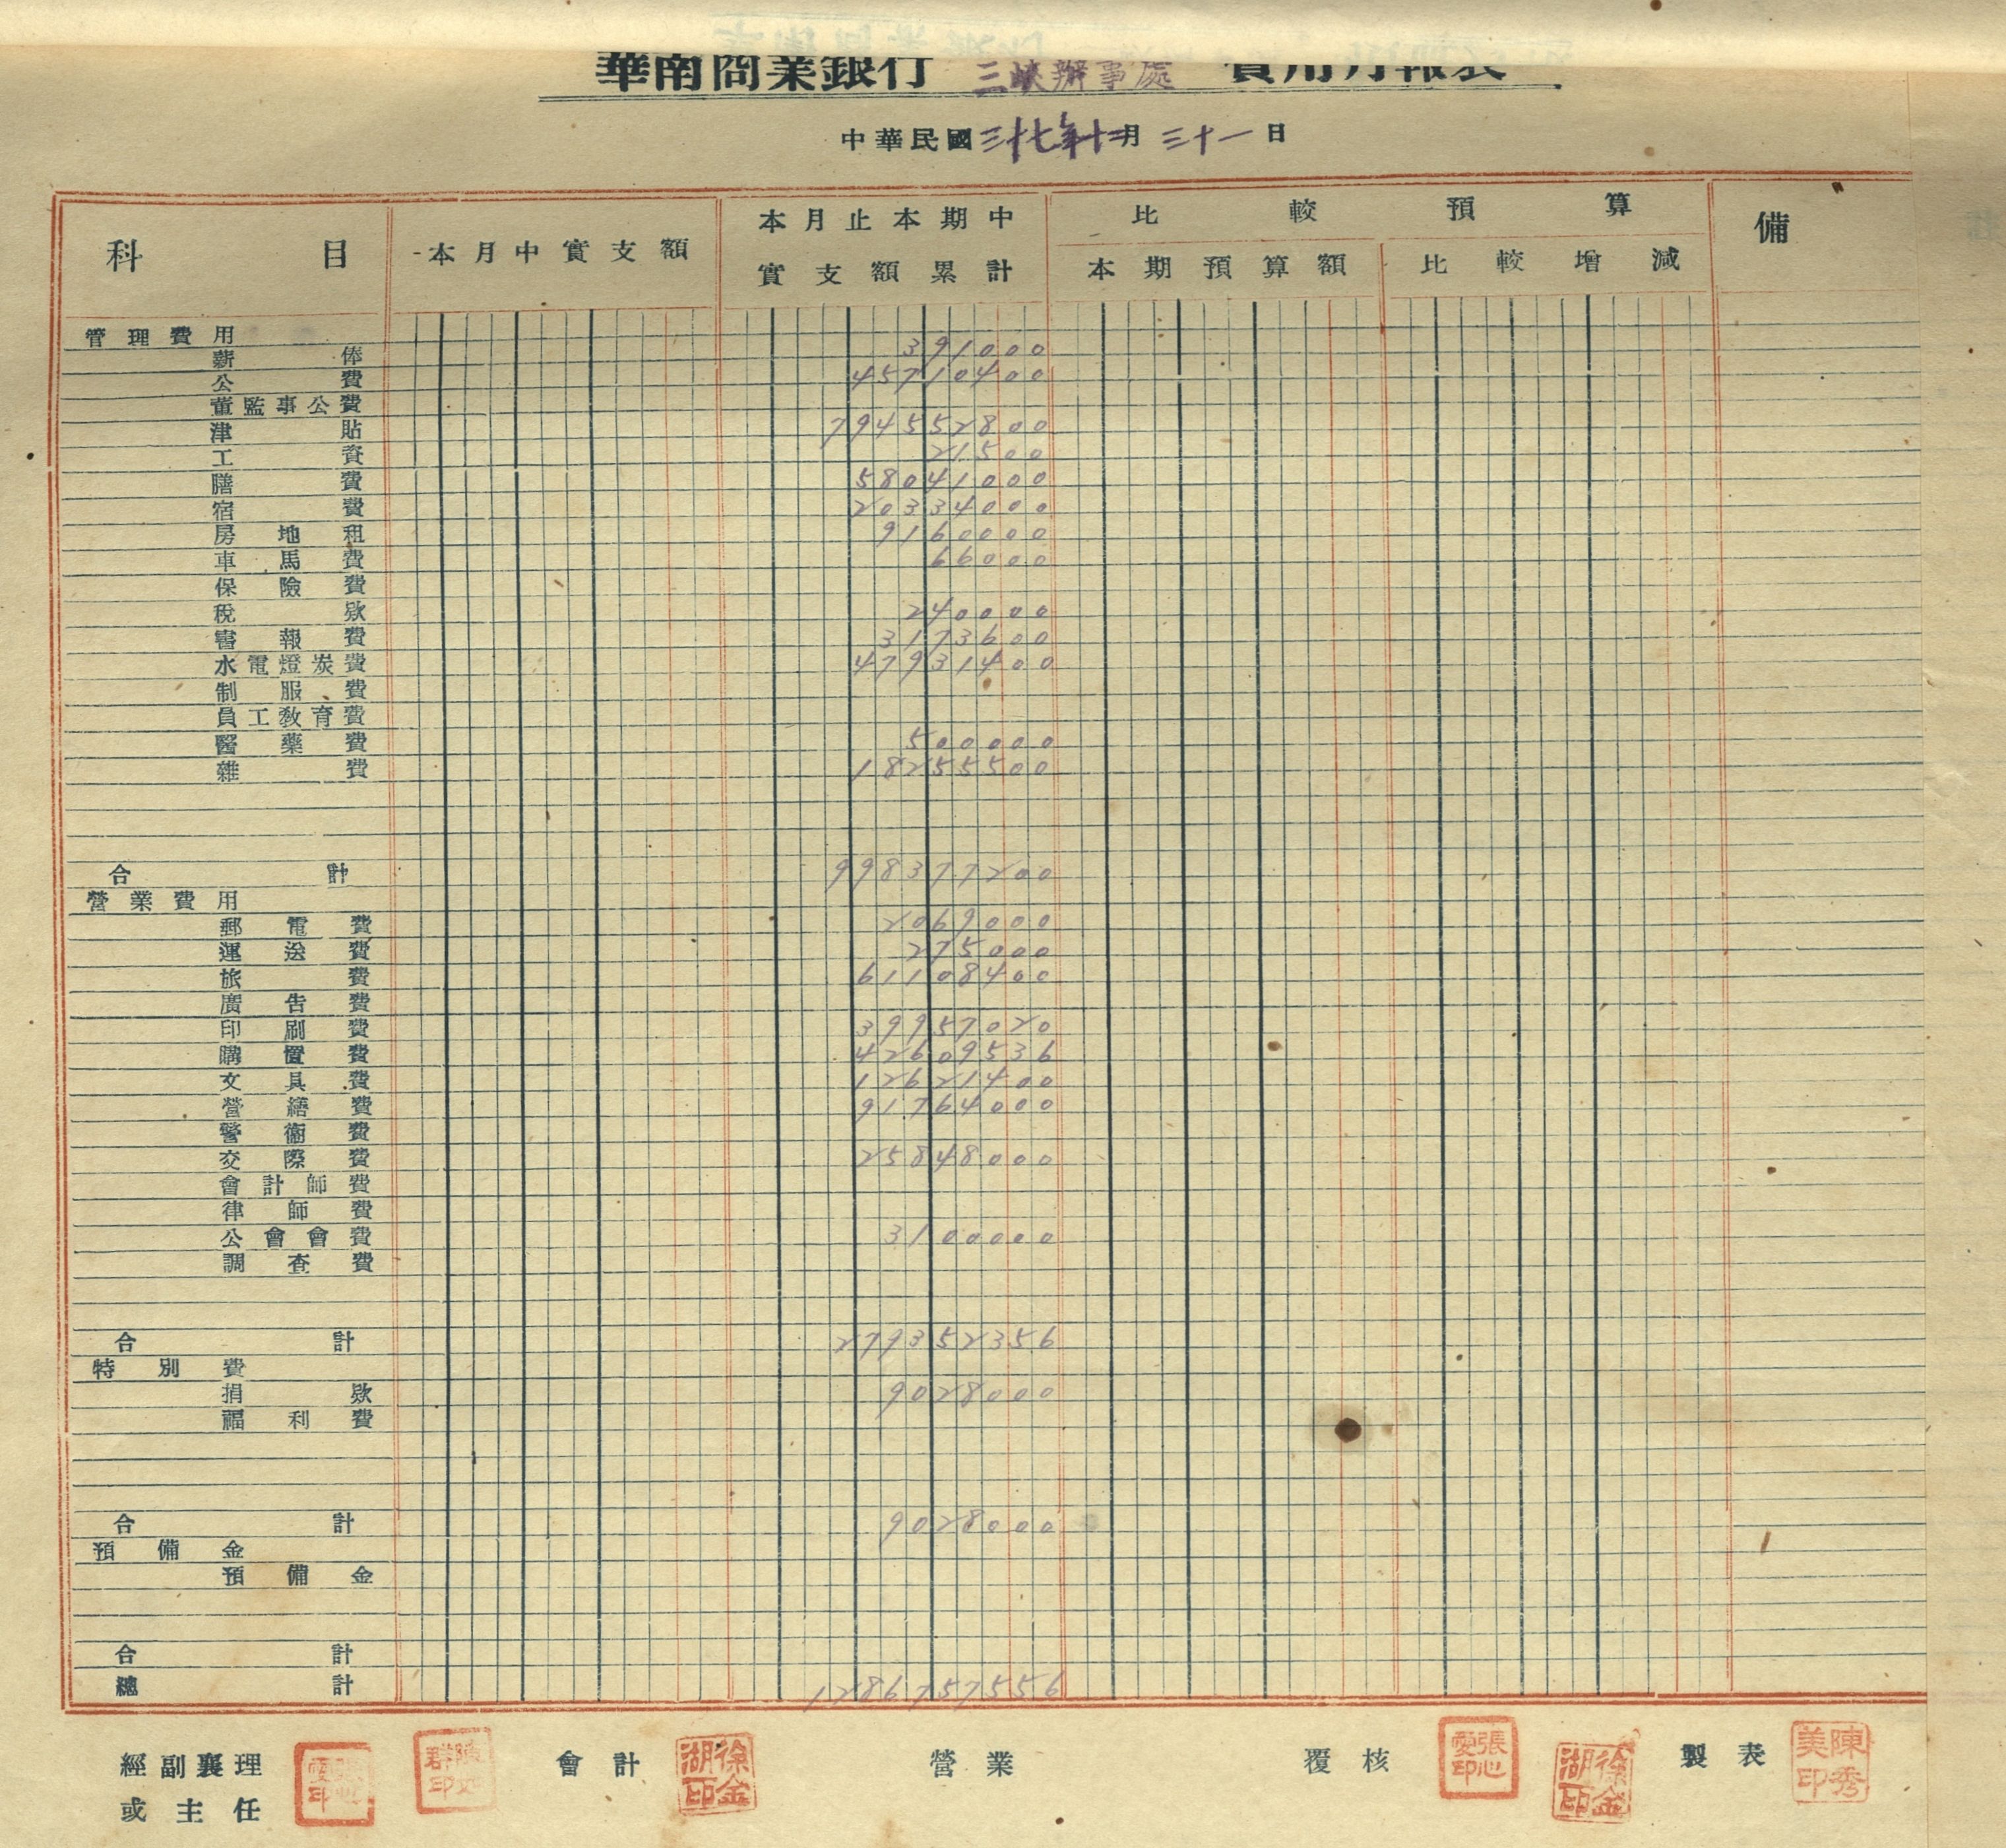 華南商業銀行 三峽辦事處 費用月報表
中華民國三十七年十二月三十一日
科目 本月中實支額 本月止本期中實支額累計 比較預算 備
本期預算額 比較增減
管理費用
薪俸 391000
公費 45710400
董監事公費
津貼 794552800
工資 21500
膳費 58041000
宿費 20334000
房地租 9160000
車馬費 66000
保險費
稅款 240000
書報費 3173600
水電燈炭費 47931400
制服費
員工教育費
醫藥費 500000
雜費 18255500
合計 998377200
營業費用
郵電費 2069000
運送費 275000
旅費 61108400
廣告費
印刷費 39957020
購置費 42609536
文具費 12621400
營繕費 91764000
警衞費
交際費 25848000
會計師費
律師費
公會會費 3100000
調查費
合計 279352356
特別費
捐款 9028000
福利費
合計 9028000
預備金
預備金
合計
總計 1286757556
經副襄理 會計 徐金湖印 營業 覆核 張心愛印 徐金湖印 製表 陳秀美印
或主任